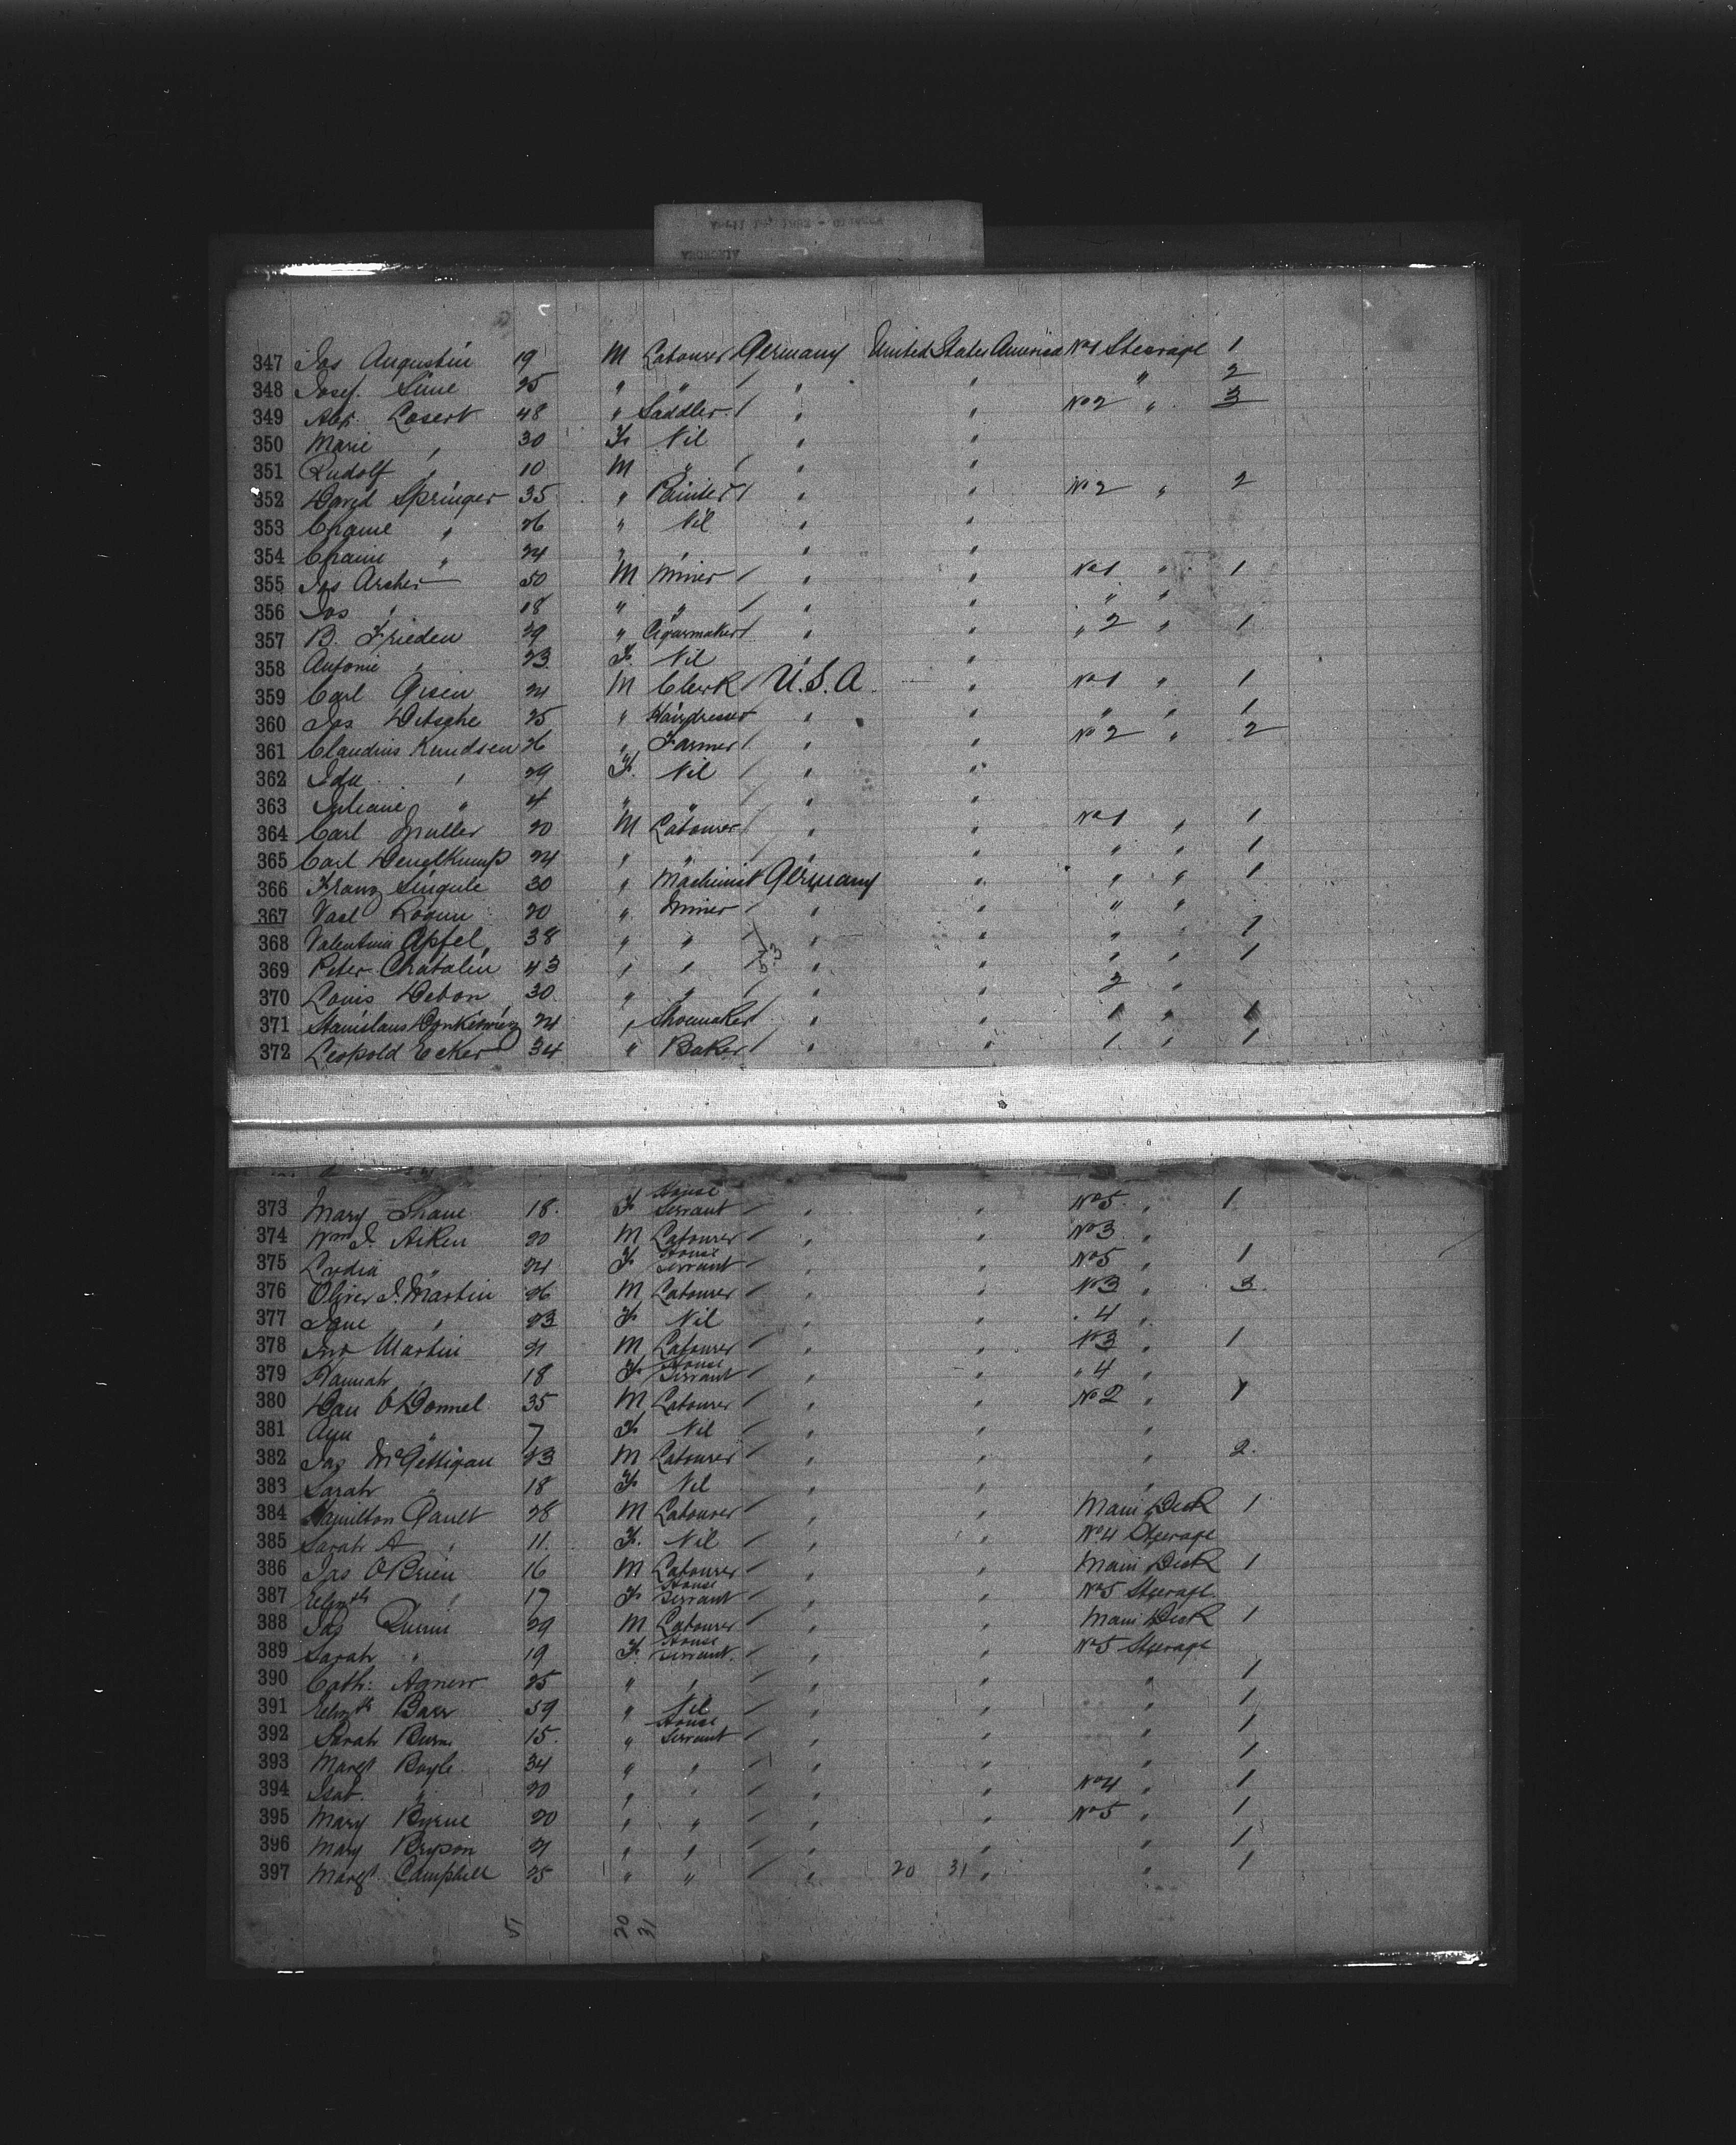 347 Jos Augustin 19 M Labourer Germany United States America No1 Steerage 1
348 Josef. Sime 25 " " / " " " 2
349 Alex. Losert 48 " Saddler / " " No2 " 3
350 Marie " 30 F Nil " "
351 Rudolf " 10 M " / " "
352 David Springer 35 " Painter / " " No2 " 2
353 Chame " 26 " Nil " "
354 Chaim " 24 " " " "
355 Jos Archer 50 M Miner / " " No1 " 1
356 Jos " 18 " " / " " " "
357 B. Frieden 29 " Cigarmaker / " " " 2 " 1
358 Antonie " 23 F. Nil " "
359 Carl Giesen 24 M Clerk / U.S.A. " No1 " 1
360 Jos Detsche 25 " Hairdresser " " " " 1
361 Claudius Knudsen 26 " Farmer / " " No2 " 2
362 Ida " 29 F. Nil / " "
363 Juliane " 4 " " / " "
364 Carl Muller 20 M Labourer / " " No1 " 1
365 Carl 24 " " / " " " " 1
366 Franz Singule 30 " Machinist Germany " " " 1
367 Vacl 20 " Miner / " " " "
368 Valentin Apfel, 38 " " / " " " " 1
369 Peter Chatalin 43 " " / " " " " 1
370 Louis Debon 30 " " / " " 2 "
371 Stanislaus 24 " Shoemaker / " " 1 " 1
372 Leopold Ecker 34 " Baker / " " 1 " 1
373 Mary Shane 18. F House Servant / " " No5 " 1
374 Wm J. Aiken 20 M Labourer / " " No3 "
375 Lydia " 24 F House Servant / " " No5 " 1
376 Oliver J. Martin 26 M Labourer / " " No3 " 3.
377 Jane " 23 F Nil " " " 4 "
378 Jno Martin 21 M Labourer / " " No3 " 1
379 Hannah " 18 F House Servant / " " " 4 "
380 Dan O'Donnel 35 M Labourer / " " No2 " 1
381 Ann " 7 F Nil / " " "
382 Jas McGettigan 23 M Labourer / " " " 2.
383 Sarah " 18 F Nil / " " "
384 Hamilton Gault 28 M Labourer / " " Main Deck 1
385 Sarah A " 11. F. Nil / " " No4 Steerage
386 Jas O'Brien 16 M Labourer / " " Main Deck 1
387 Elizth " 17 F House Servant / " " No5 Steerage
388 Jas Quinn 29 M Labourer / " " Main Deck 1
389 Sarah " 19 F House Servant. / " " No5 Steerage
390 Cath: Agnew 25 " " / " " " 1
391 Elizth Barr 59 " Nil / " " " 1
392 Sarah Burn 15. " House Servant / " " " 1
393 Margt Boyle 34 " " / " " " 1
394 Isab. " 20 " " / " " No4 " 1
395 Mary Byrne 20 " " / " " No5 " 1
396 Mary Bryson 21 " " / " " " 1
397 Margt. Campbell 25 " " / " 20 31 " " 1
5 20 31